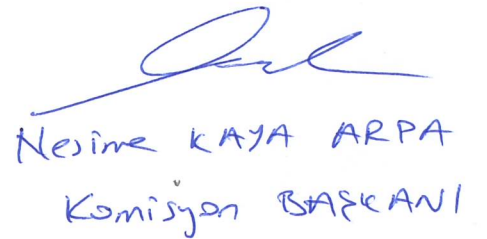 Nesime KAYA ARPA
Komisyon BAŞKANI